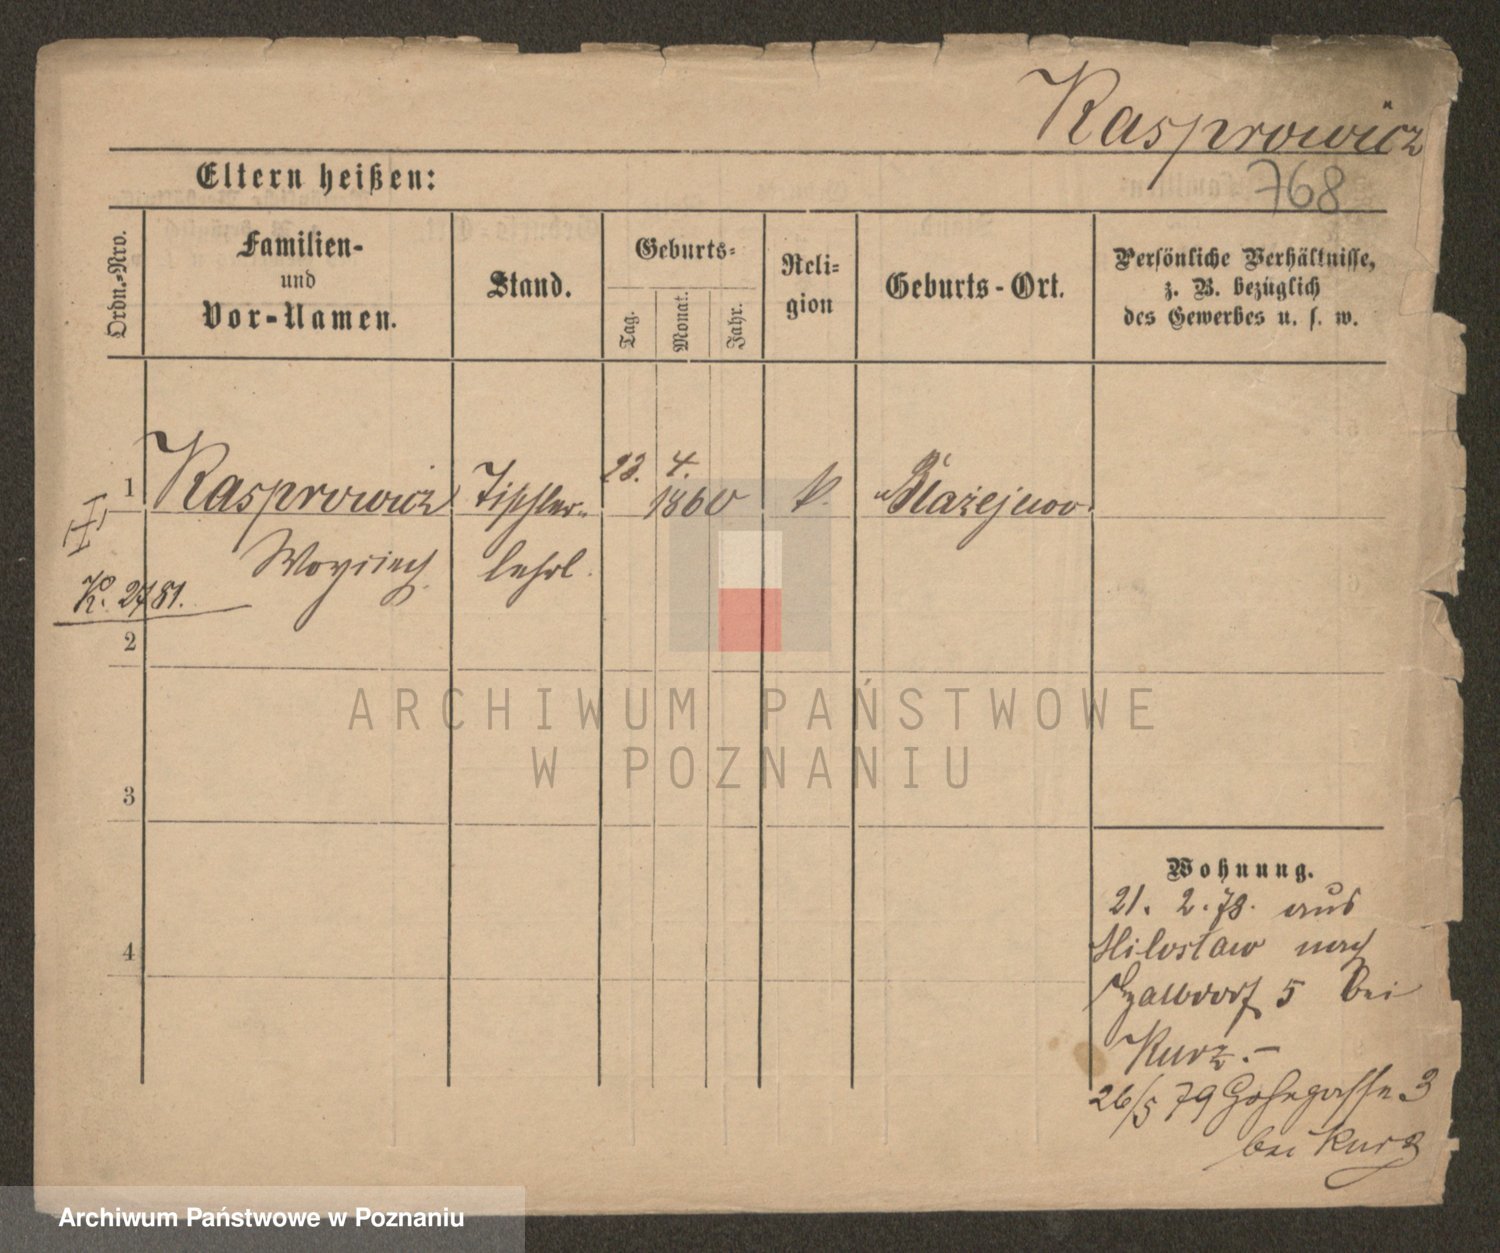 Kasprowicz
768
Eltern heißen:
Ordn.-Nro.
Familien-
und
Vor-Namen.
Stand.
Geburts-
Tag.
Monat.
Jahr.
Reli-
gion
Geburts-Ort.
Persönliche Verhältnisse,
z. B. bezüglich
des Gewerbes u. s. w.
1 Kasprowicz Tischler- 23. 4. 1860 k. Błażejewo
Woyciech lehrl.
K. 2781.
2
3
4
Wohnung.
21. 2. 78. aus
Miloslaw nach
5 bei
Kurz.-
26/5 79 3
bei Kurz
ARCHIWUM PAŃSTWOWE
W POZNANIU
Archiwum Państwowe w Poznaniu